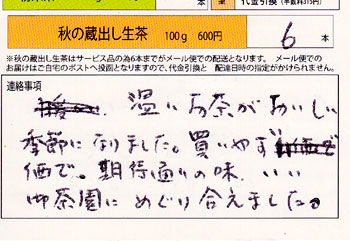 本 代金引換(手数料315円)
秋の蔵出し生茶 100g 600円 6 本
※秋の蔵出し生茶はサービス品の為6本までがメール便での配送となります。 メール便での
お届けはご自宅のポストへ投函となりますので、代金引換と 配達日時の指定がかけられません。
連絡事項
温いお茶がおいしい
季節になりました。買いやす
価で。期待通りの味。いい
御茶園にめぐり合えました。